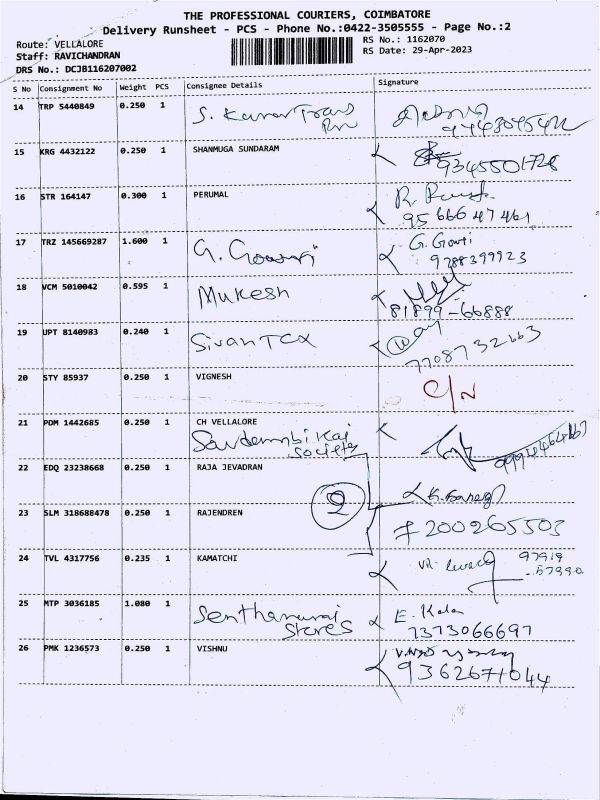 THE PROFESSIONAL COURIERS, COIMBATORE
Delivery Runsheet - PCS - Phone No.:0422-3505555 - Page No.:2
Route: VELLALORE
RS No.: 1162070
Staff: RAVICHANDRAN
RS Date: 29-Apr-2023
DRS No.: DCJB116207002
S No Consignment No Weight PCS Consignee Details Signature
14 TRP 5440849 0.250 1 S. Kumar Trans
15 KRG 4432122 0.250 1 SHANMUGA SUNDARAM
9345501728
16 STR 164147 0.300 1 PERUMAL R.
95 666 47 461
17 TRZ 145669287 1.600 1 G. Gowri G. Gowri
9788399923
18 VCM 5010042 0.595 1 Mukesh
81899-66888
19 UPT 8140983 0.240 1 Sivan TEX
7708732663
20 STY 85937 0.250 1 VIGNESH C/N
21 PDM 1442685 0.250 1 CH VELLALORE
22 EDQ 23238668 0.250 1 RAJA JEVADRAN
2
23 SLM 318688478 0.250 1 RAJENDREN
7200265503
24 TVL 4317756 0.235 1 KAMATCHI
97919
-57990
25 MTP 3036185 1.080 1 Senthamurai E. Kala
Stores 7373066697
26 PMK 1236573 0.250 1 VISHNU
9362671044